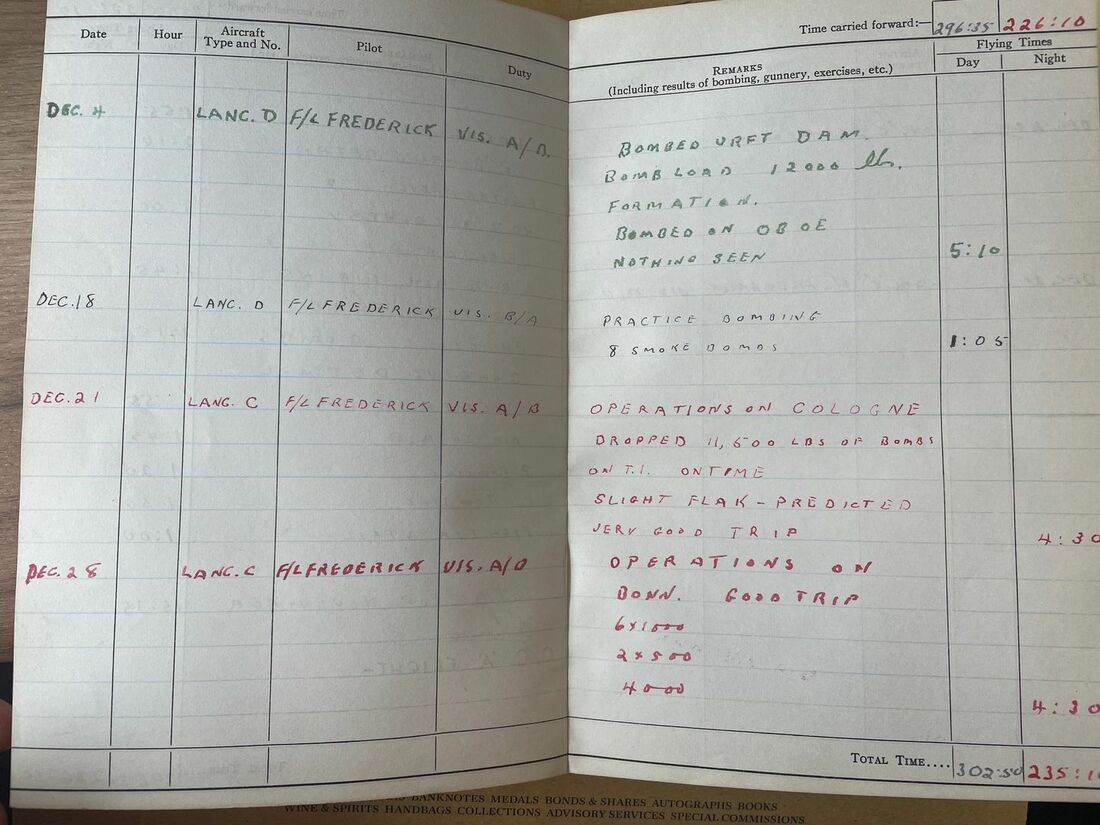 Date Hour Aircraft Type and No. Pilot Duty
DEC. 4 LANC. D F/L FREDERICK VIS. A/B.
DEC. 18 LANC. D F/L FREDERICK VIS. B/A
DEC. 21 LANC. C F/L FREDERICK VIS. A/B
DEC. 28 LANC. C F/L FREDERICK VIS. A/B
Time carried forward:— 296:35 226:10
REMARKS
(Including results of bombing, gunnery, exercises, etc.)
Flying Times
Day Night
BOMBED URFT DAM.
BOMB LOAD 12000 lbs.
FORMATION.
BOMBED ON OBOE
NOTHING SEEN 5:10
PRACTICE BOMBING
8 SMOKE BOMBS 1:05
OPERATIONS ON COLOGNE
DROPPED 11,500 LBS OF BOMBS
ON T.I. ON TIME
SLIGHT FLAK - PREDICTED
VERY GOOD TRIP 4:30
OPERATIONS ON
BONN. GOOD TRIP
6x1000
2x500
4000
4:30
TOTAL TIME.... 302:50 235:10
BANKNOTES MEDALS BONDS & SHARES AUTOGRAPHS BOOKS
WINE & SPIRITS HANDBAGS COLLECTIONS ADVISORY SERVICES SPECIAL COMMISSIONS